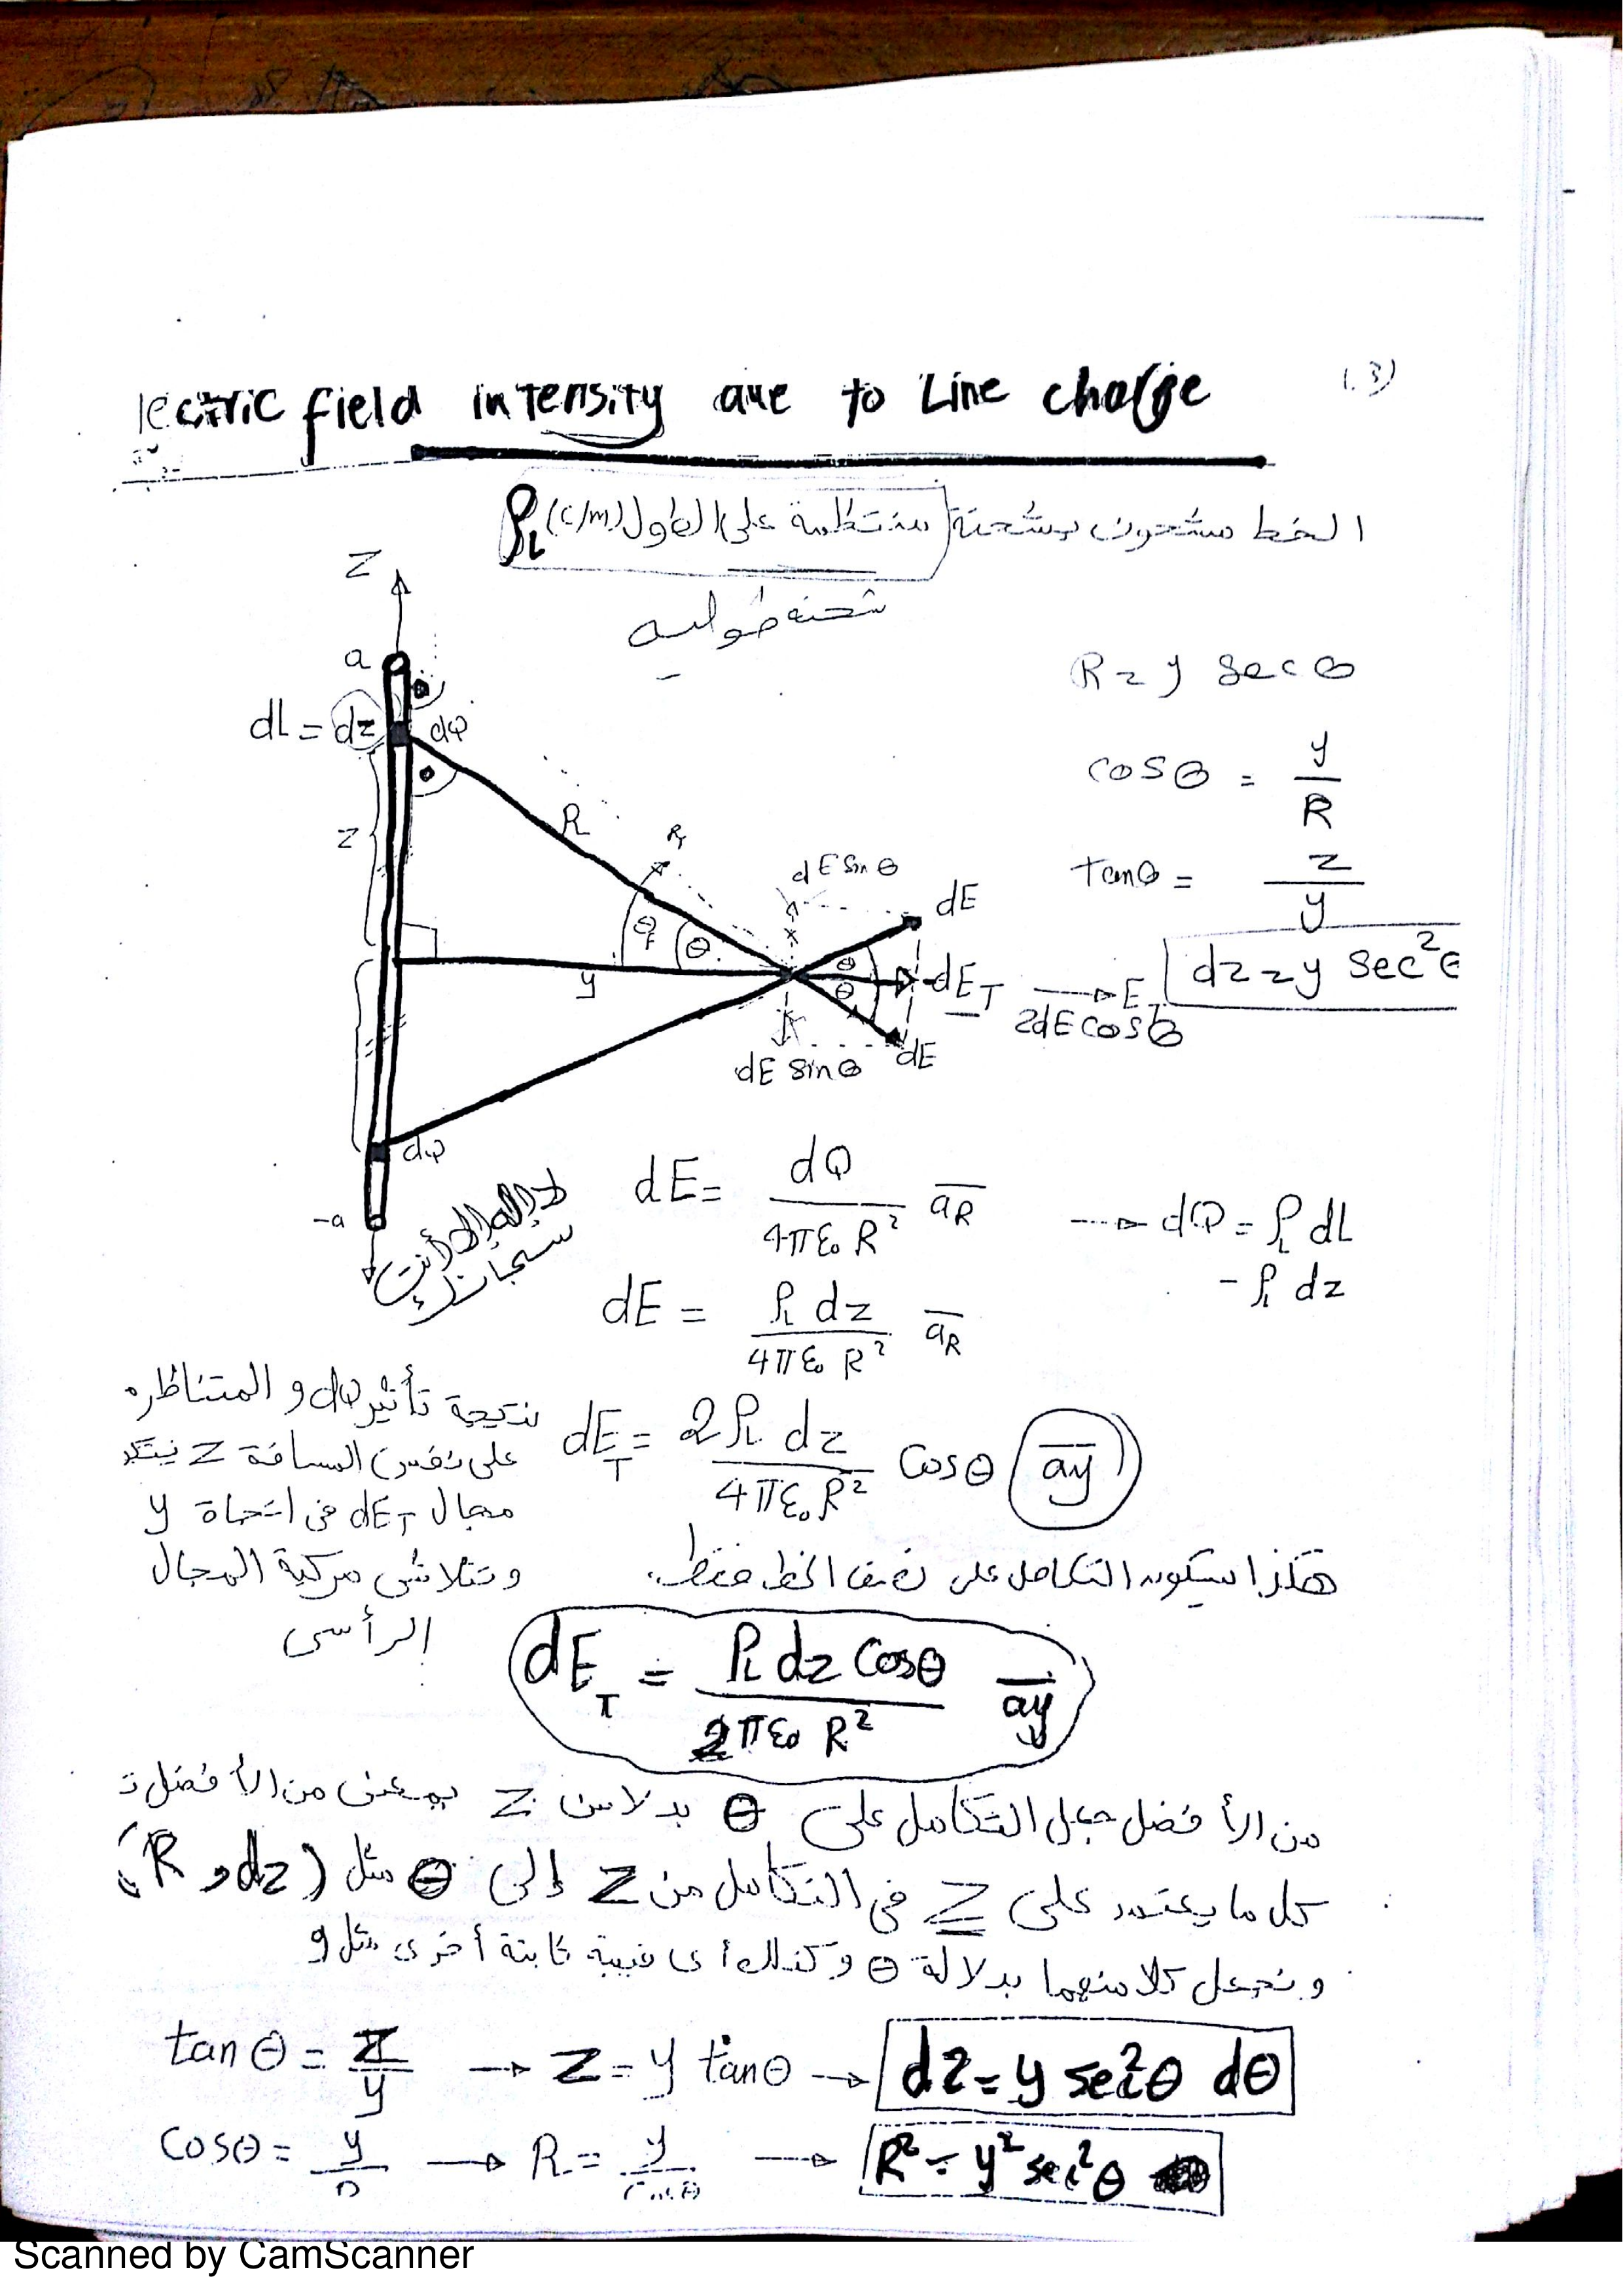 lectric field intensity due to Line charge
(.3)
الخط مشحون بشحنة منتظمة على الطول ρL (c/m)
شحنه طوليه
Z
a
dL = dz dQ
z
R
y
-a
dQ
R = y sec θ
cosθ = y / R
tanθ = z / y
dz = y sec²θ
dE sin θ
dE
θ
dE_T → E_T
2dE cosθ
dE sinθ
dE
لا إله إلا أنت
سبحانك
dE = dQ / 4πε₀R² a̅R → dQ = ρL dL
= ρL dz
dE = ρL dz / 4πε₀R² a̅R
نتيجة تأثير dQ و المتناظره
على نفس المسافة z ينتج
مجال dE_T فى اتجاة y
وتتلاشى مركبة المجال
الرأسى
dE_T = 2ρL dz / 4πε₀R² cosθ a̅y
هكذا سيكون التكامل على نصف الخط فقط.
dE_T = ρL dz cosθ / 2πε₀R² a̅y
من الأفضل جعل التكامل على θ بدلا من z بمعنى من الأفضل
كل ما يعتمد على z فى التكامل من z إلى θ مثل (R و dz)
و نجعل كلا منهما بدلالة θ وكذلك أى قيمة ثابتة أخرى مثل y
tanθ = z / y → z = y tanθ → dz = y sec²θ dθ
cosθ = y / R → R = y / cosθ → R² = y² sec²θ
Scanned by CamScanner